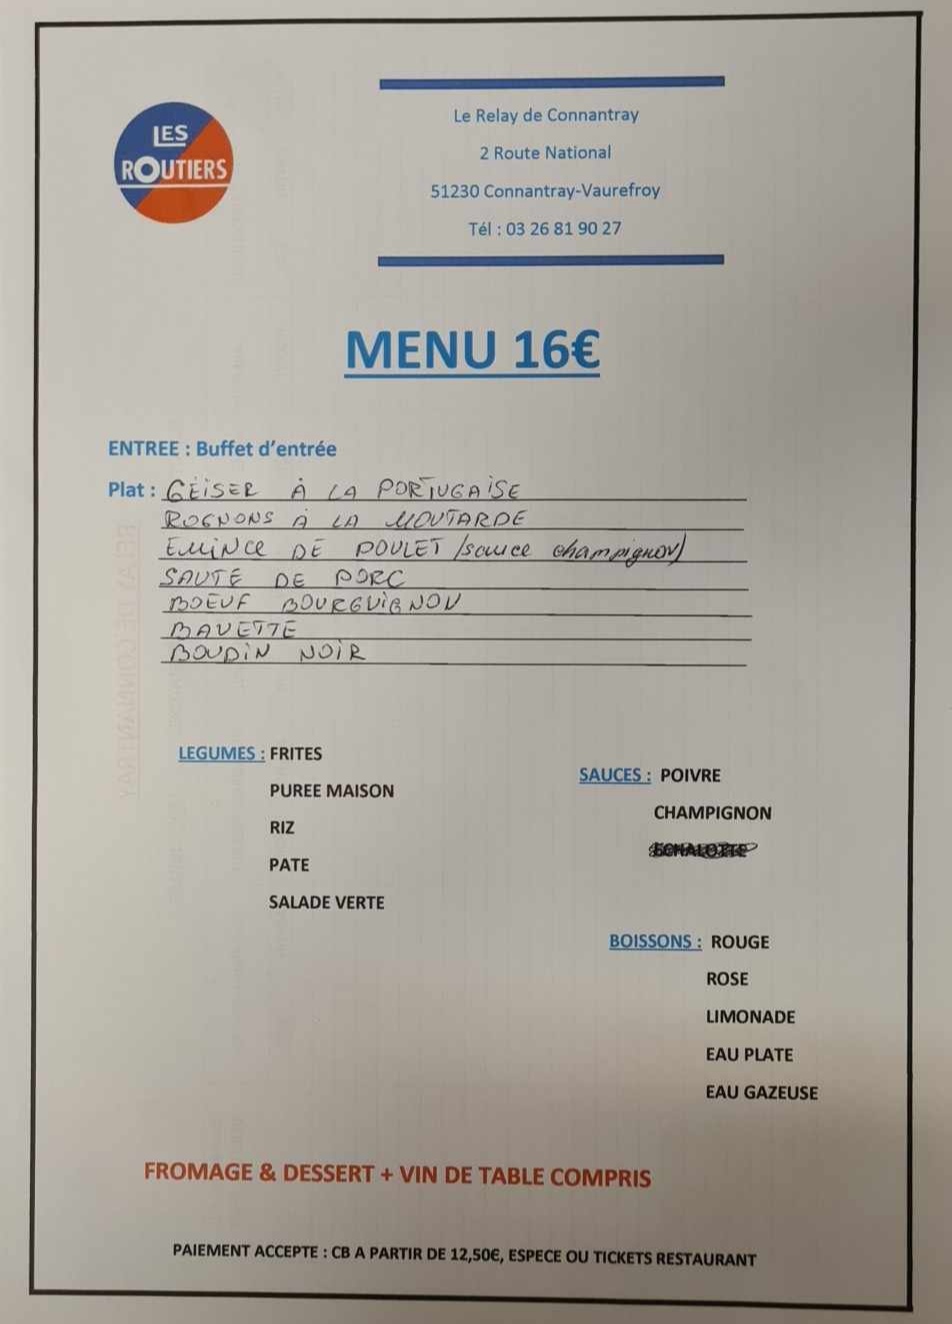 LES
ROUTIERS
Le Relay de Connantray
2 Route National
51230 Connantray-Vaurefroy
Tél : 03 26 81 90 27
MENU 16€
ENTREE : Buffet d'entrée
Plat : GÉISER À LA PORTUGAISE
ROGNONS À LA MOUTARDE
EMINCE DE POULET (sauce champignon)
SAUTÉ DE PORC
BOEUF BOURGUIGNON
BAVETTE
BOUDIN NOIR
LEGUMES : FRITES
PUREE MAISON
RIZ
PATE
SALADE VERTE
SAUCES : POIVRE
CHAMPIGNON
ECHALOTTE
BOISSONS : ROUGE
ROSE
LIMONADE
EAU PLATE
EAU GAZEUSE
FROMAGE & DESSERT + VIN DE TABLE COMPRIS
PAIEMENT ACCEPTE : CB A PARTIR DE 12,50€, ESPECE OU TICKETS RESTAURANT